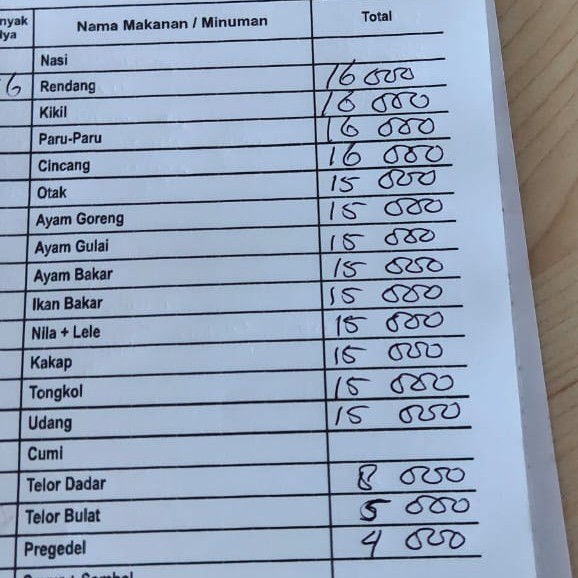 nyak Nama Makanan / Minuman Total
Nasi
6 Rendang 16 000
Kikil 16 000
Paru-Paru 16 000
Cincang 16 000
Otak 15 000
Ayam Goreng 15 000
Ayam Gulai 15 000
Ayam Bakar 15 000
Ikan Bakar 15 000
Nila + Lele 15 000
Kakap 15 000
Tongkol 15 000
Udang 15 000
Cumi
Telor Dadar 8 000
Telor Bulat 5 000
Pregedel 4 000